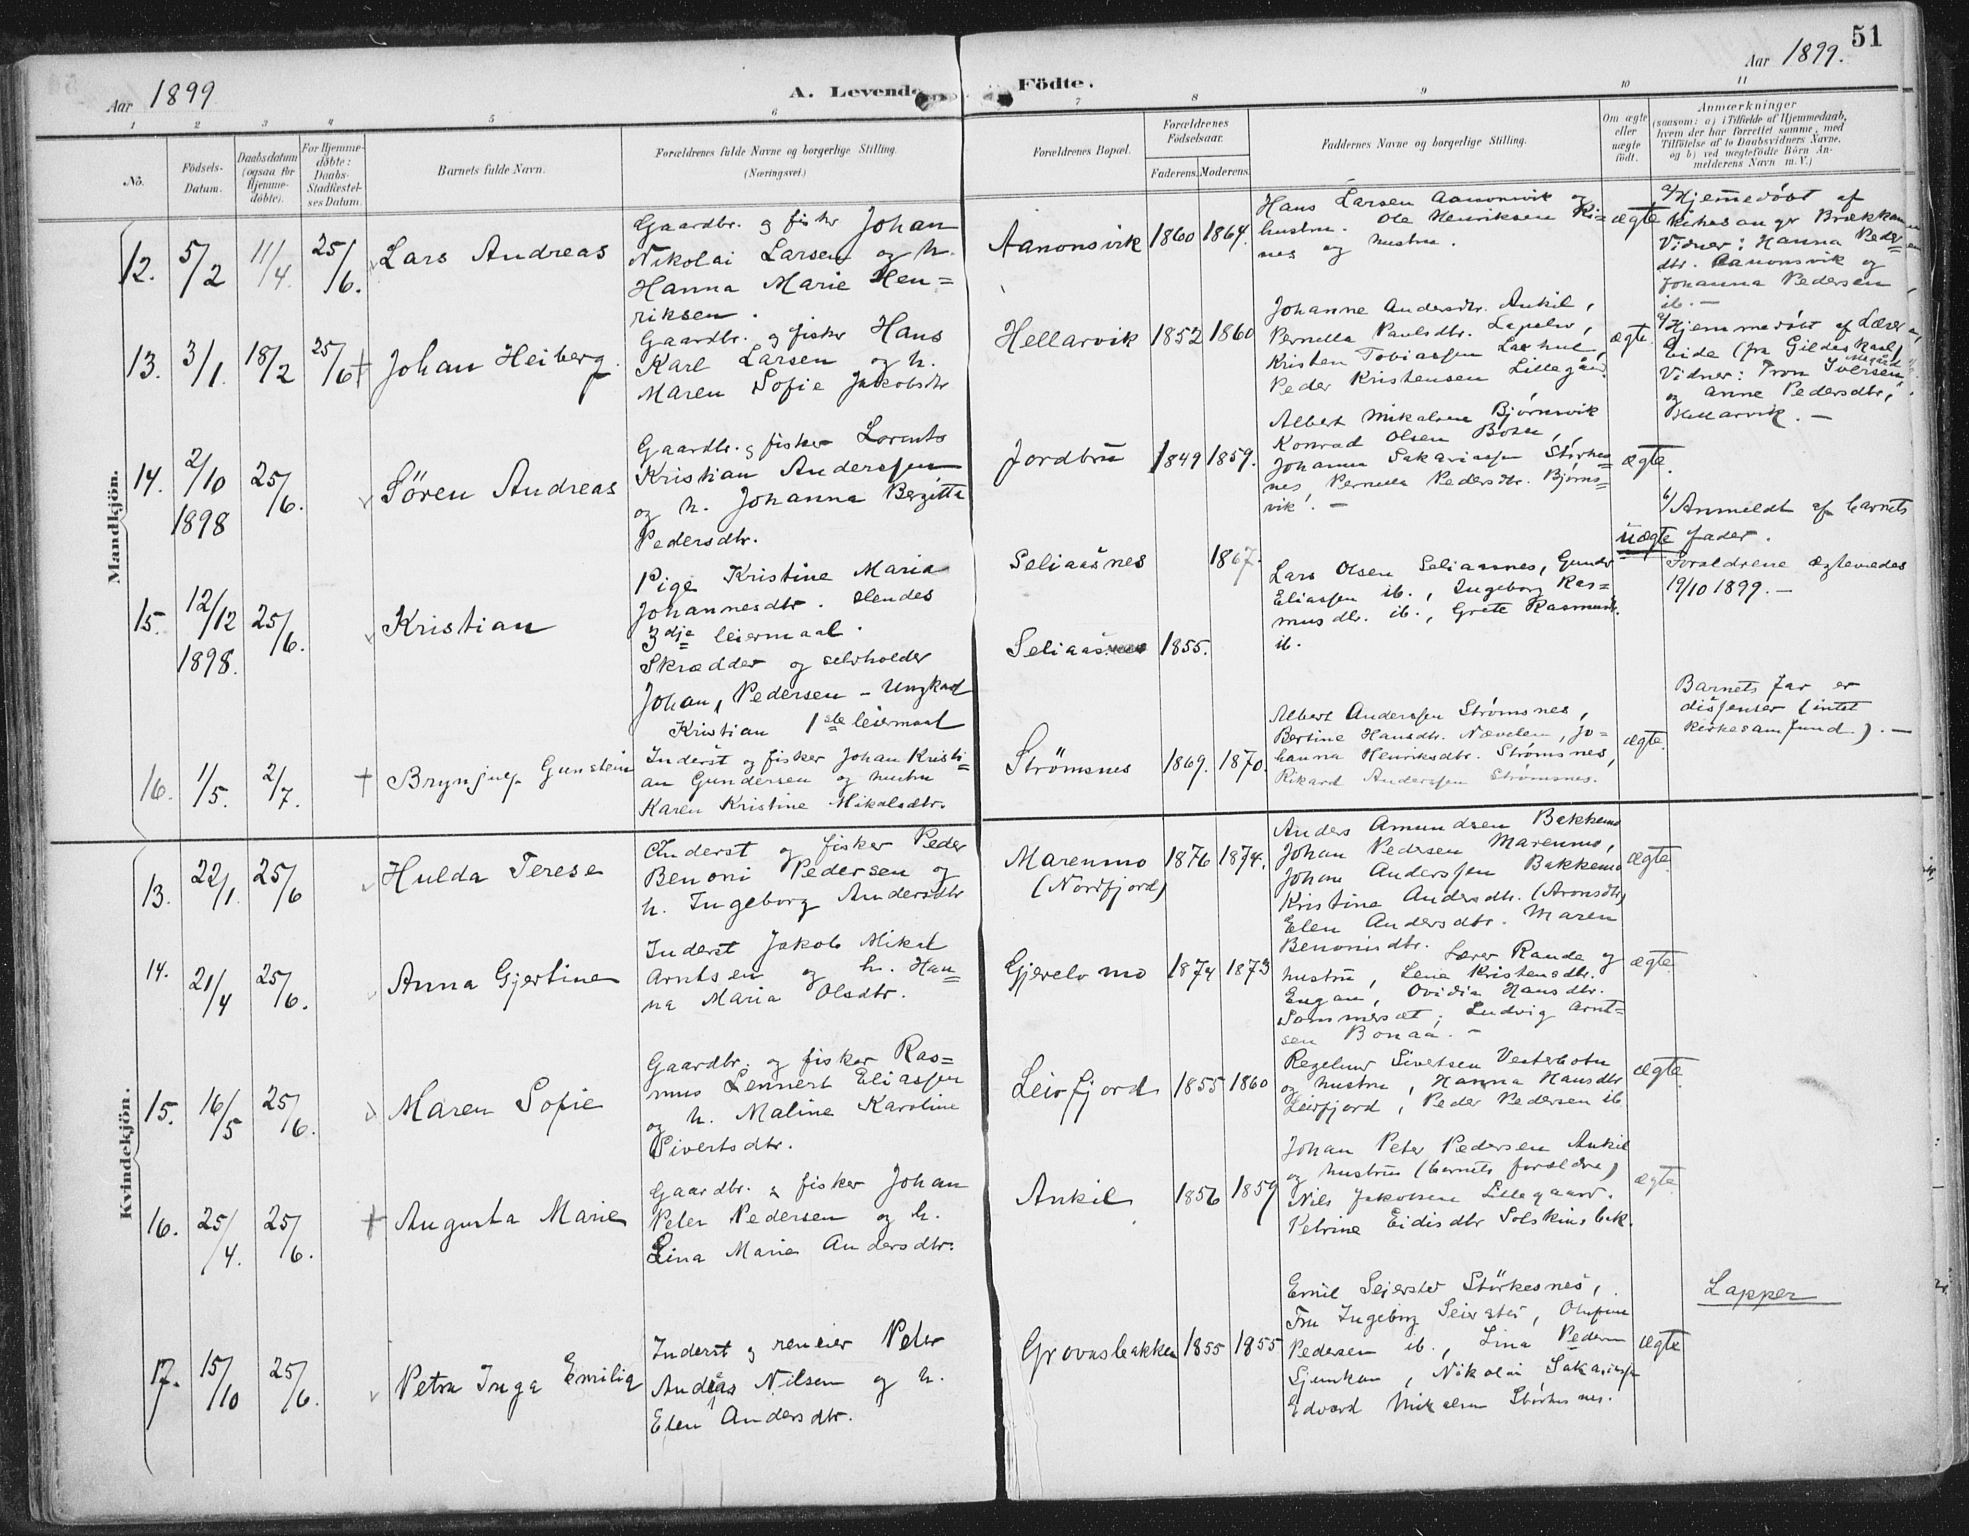 51
Aar 1899
A. Levende Födte.
Aar 1899.
1 2 3 4 5 6 7 8 9 10 11
No.
Födsels-
Datum.
Daabsdatum
(ogsaa for
Hjemme-
døbte).
For Hjemme-
døbte:
Daabs-
Stadfæstel-
ses Datum.
Barnets fulde Navn.
Forældrenes fulde Navne og borgerlige Stilling.
(Næringsvei.)
Forældrenes Bopæl.
Forældrenes
Födselsaar.
Faderens. Moderens.
Faddernes Navne og borgerlige Stilling.
Om ægte
eller
uægte
født.
Anmærkninger
(saasom: a) i Tilfælde af Hjemmedaab,
hvem der har forrettet samme, med
Tilføielse af to Daabsvidners Navne,
og b) ved uægtefödte Börn An-
melderens Navn m. V.)
Mandkjön.
12.
5/2
11/4.
25/6.
Lars Andreas
Gaardbr. og fisker Johan
Nikolai Larsen og h.
Hanna Marie Hen=
riksen.
Aanonsvik
1860
1864.
Hans Larsen Aanonsvik og
hustru. Ole Henriksen Ki-
nes og hustru.
ægte
a/ Hjemmedøbt af
kirkesanger Brækkan
Vidner: Hanna Peder=
dtr. Aanonsvik og
Johanna Pedersen
ib. —
13.
3/1.
18/2
25/6
Johan Heiberg
Gaardbr. og fisker Hans
Karl Larsen og h.
Maren Sofie Jakobsdtr
Hellarvik
1852
1860
Johanne Andersdtr. Ankil,
Pernella Paulsdtr.
Kristen Tobiassen
Peder Kristensen Lillegård.
ægte.
a/ Hjemmedøbt af Lærer
Eide (fra Gildeskaal)
Vidner: Tron Iversen
og Anne Pedersdtr,
Hellarvik. —
14.
2/10
1898
25/6.
Sören Andreas
Gaardbr. og fisker Lorents
Kristian Anderssen
og h. Johanna Bergitta
Pedersdtr.
Jordbrú
1849
1859.
Albert Mikalsen Bjørnsvik
Konrad Olsen Bosen,
Johanna Sakariassen Störkes=
nes, Pernella Pedersdtr. Bjørns=
vik. —
ægte.
15.
12/12
1898.
25/6.
Kristian
Pige Kristine Maria
Johannesdtr. Hendes
3dje leiermaal.
Skrædder og selvholder
Johan Pedersen – Ungkarl
Kristian 1ste leiermaal
Seliaasnes
1867.
Seliaasnes
1855.
Lars Olsen Seliaasnes, Gunder
Eliassen ib., Ingeborg Ras=
musdtr. ib., Grete Rasmusdtr.
ib.
uægte
b/ Anmeldt af barnets
fader.
Foraldrene ægteviedes
19/10 1899. —
16.
1/5.
2/7.
Brynjulf Gunstein
Inderst og fisker Johan Kristi=
an Gundersen og hustru
Karen Kristine Mikalsdtr.
Strømsnes
1869.
1870.
Albert Anderssen Strømsnes,
Bertine Hansdtr. Nævelen, Jo=
hanna Henriksdtr. Strømsnes,
Rikard Anderssen Strømsnes.
ægte.
Barnets far er
disenter (intet
kirkesamfund). —
Kvindekjön.
13.
22/1.
25/6
Hulda Terese
Inderst og fisker Peder
Benoni Pedersen og
h. Ingeborg Andersdtr
Marenmo
(Nordfjord)
1876
1874.
Anders Amundsen Bakkemo
Johan Pedersen Marenmo,
Johan Anderssen Bakkemo
Kristine Andersdtr. (Aronsdtr)
Elen Andersdtr. Maren
Benonisdtr.
ægte.
14.
21/4
25/6.
Anna Gjertine
Inderst Jakob Mikal
Arntsen og h. Han=
na Maria Olsdtr.
Gjerelvmo
1874
1873
Lærer Rande og
hustru, Lena Kristensdtr.
Engan, Ovidia Hansdtr.
Sommerset, Ludvig Arnt=
sen Bonaa. —
ægte.
15.
16/5
25/6.
Maren Sofie
Gaardbr. og fisker Ras=
mus Lennert Eliassen
og h. Maline Karoline
Sivertsdtr.
Leirfjord
1855
1860
Sivertsen Vesterbotn
og hustru, Hanna Hansdtr
Leirfjord, Peder Pedersen ib.
ægte.
16.
25/4.
25/6.
Augusta Marie
Gaardbr. og fisker Johan
Peter Pedersen og h.
Lina Marie Andersdtr.
Ankil
1856
1859
Johan Peter Pedersen Ankil
og hustru (barnets foraldre)
Nils Jakobsen Lillegaard.
Petrine Eidisdtr Solskinsbak.
ægte.
17.
15/10
25/6.
Petra Inga Emilie
Inderst og reneier Peter
Andreas Nilsen og h.
Elen Andersdtr.
Grovasbakken
1855
1855
Emil Sejersted Störkesnes,
Fru Ingeborg Seiersted, Olufine
Pedersen ib., Lina Pedersen
Nikolai Sakariassen
Edvard Mikalsen Störkesnes.
ægte
Lapper